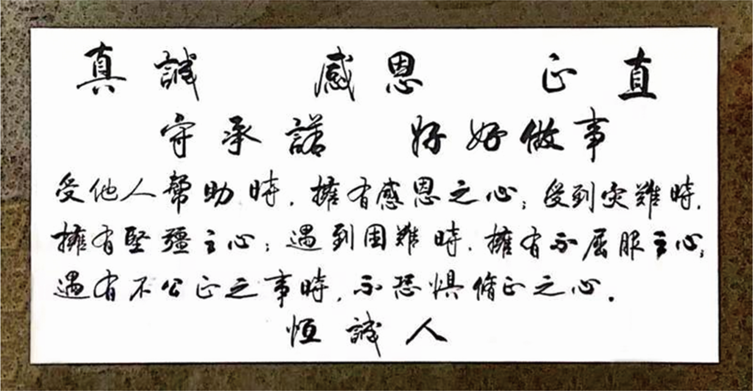 真誠 感恩 正直
守承諾 好好做事
受他人幫助時，擁有感恩之心；受到災難時，
擁有堅疆之心；遇到困難時，擁有不屈服之心；
遇有不公正之事時，不恐懼脩正之心。
恆誠人